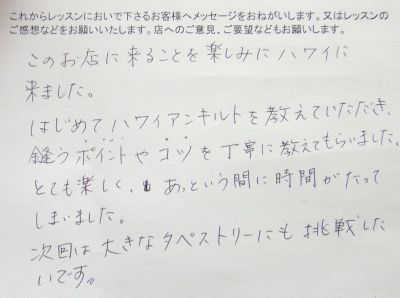 これからレッスンにおいで下さるお客様へメッセージをおねがいします。又はレッスンの
ご感想などをお願いいたします。店へのご意見、ご要望などもお願いします。
このお店に来ることを楽しみにハワイに
来ました。
はじめてハワイアンキルトを教えていただき、
縫うポイントやコツを丁寧に教えてもらいました。
とても楽しく、あっという間に時間がたって
しまいました。
次回は大きなタペストリーにも挑戦した
いです。